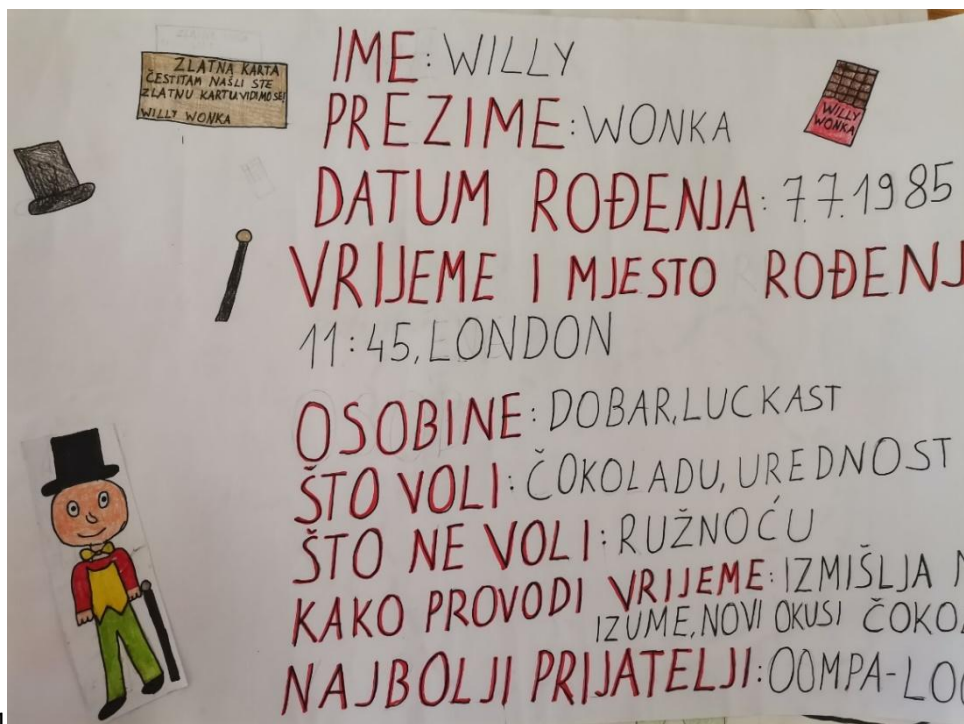 ZLATNA KARTA
ČESTITAM NAŠLI STE
ZLATNU KARTU VIDIMO SE!
WILLY WONKA
IME: WILLY
PREZIME: WONKA
WILLY
WONKA
DATUM ROĐENJA: 7.7.1985
VRIJEME I MJESTO ROĐENJ
11:45, LONDON
OSOBINE: DOBAR, LUCKAST
ŠTO VOLI: ČOKOLADU, UREDNOST
ŠTO NE VOLI: RUŽNOĆU
KAKO PROVODI VRIJEME: IZMIŠLJA
IZUME, NOVI OKUSI ČOKO
NAJBOLJI PRIJATELJI: OOMPA-LOO